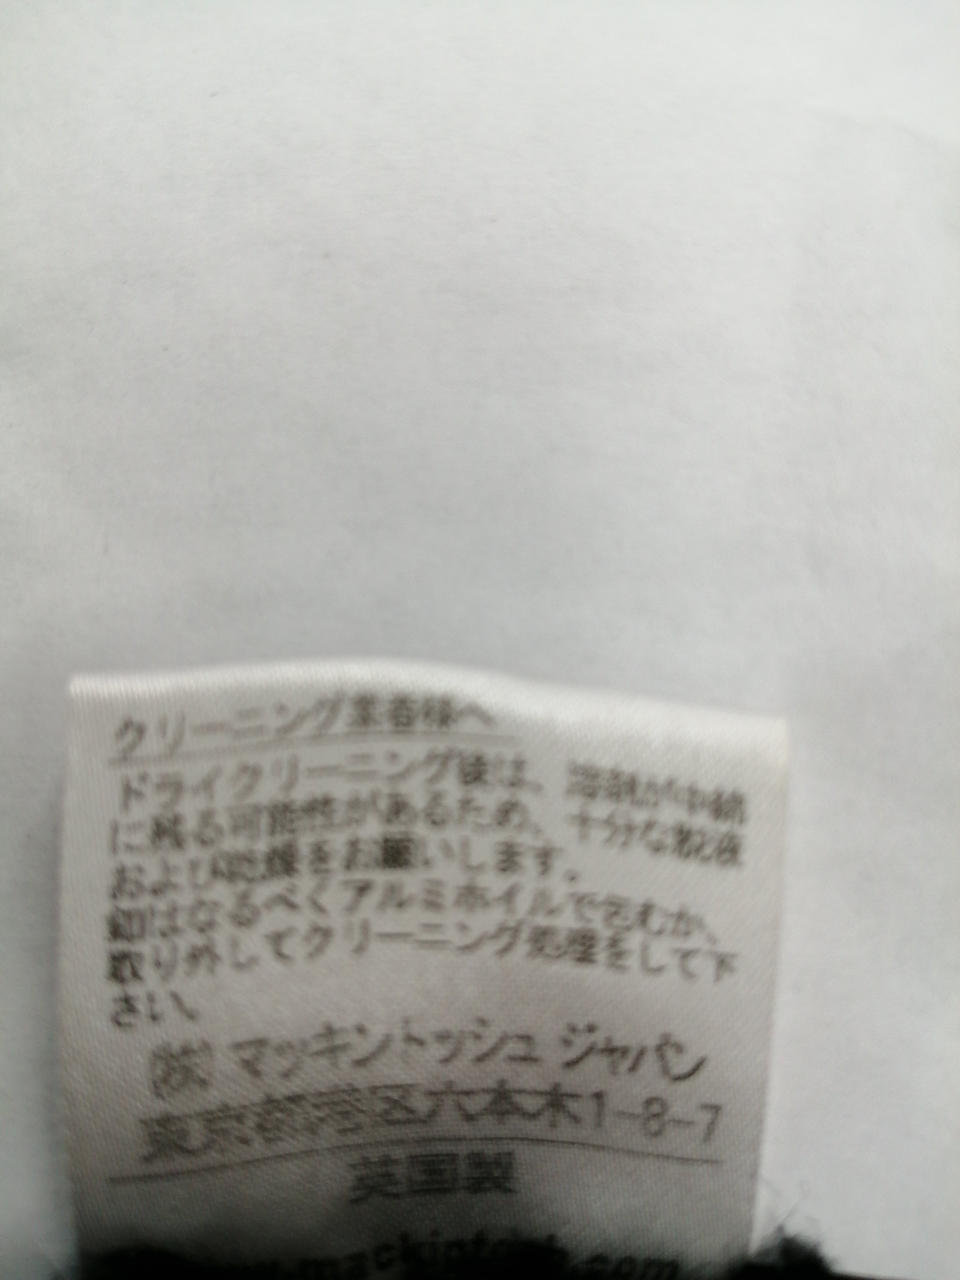 クリーニング業者様へ
ドライクリーニング後は、溶剤が中綿
に残る可能性があるため、十分な脱液
および乾燥をお願いします。
釦はなるべくアルミホイルで包むか、
取り外してクリーニング処理をして下
さい。
(株) マッキントッシュ ジャパン
東京都港区六本木1-8-7
英国製
www.mackintosh.com